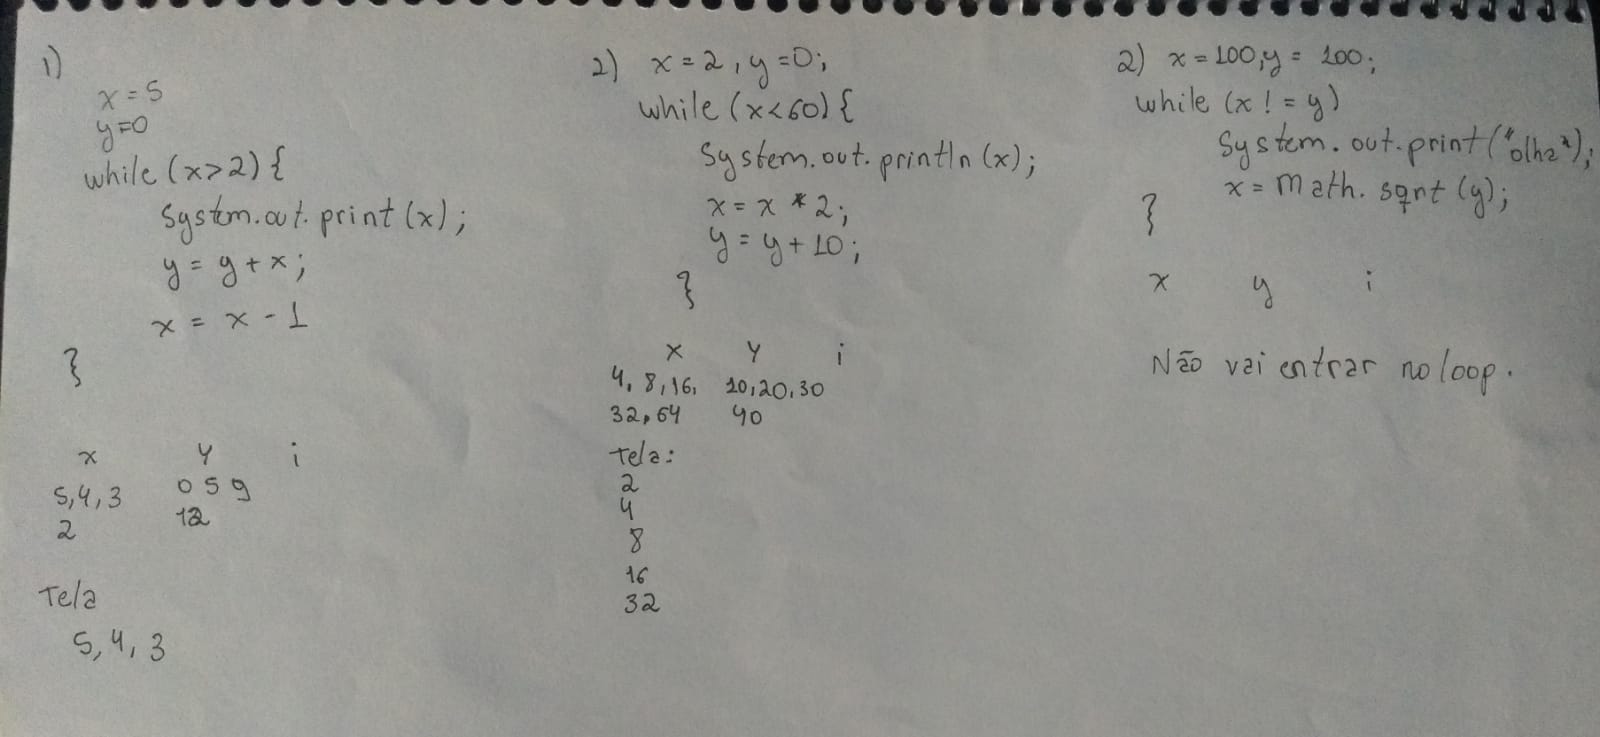 1)
x = 5
y=0
while (x>2) {
System.out.print(x);
y = y+x;
x = x - 1
}
x y i
5,4,3 0 5 9
2 12
Tela
5, 4, 3
2) x = 2, y = 0;
while (x<60) {
System.out.println(x);
x = x * 2;
y = y + 10;
}
x y i
4, 8, 16, 10, 20, 30
32, 64 40
Tela:
2
4
8
16
32
2) x = 100, y = 100;
while (x != y)
System.out.print("olha");
x = Math.sqrt(y);
}
x y i
Não vai entrar no loop.